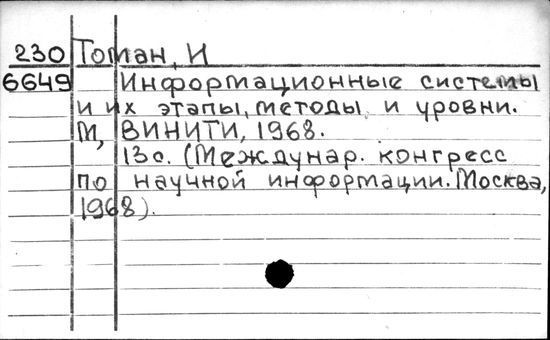 230 Томан, И
6649 Информационные системы
и их этапы, методы и уровни.
М, ВИНИТИ, 1968.
13с. (Междунар. конгресс
по научной информации. Москва,
1968).